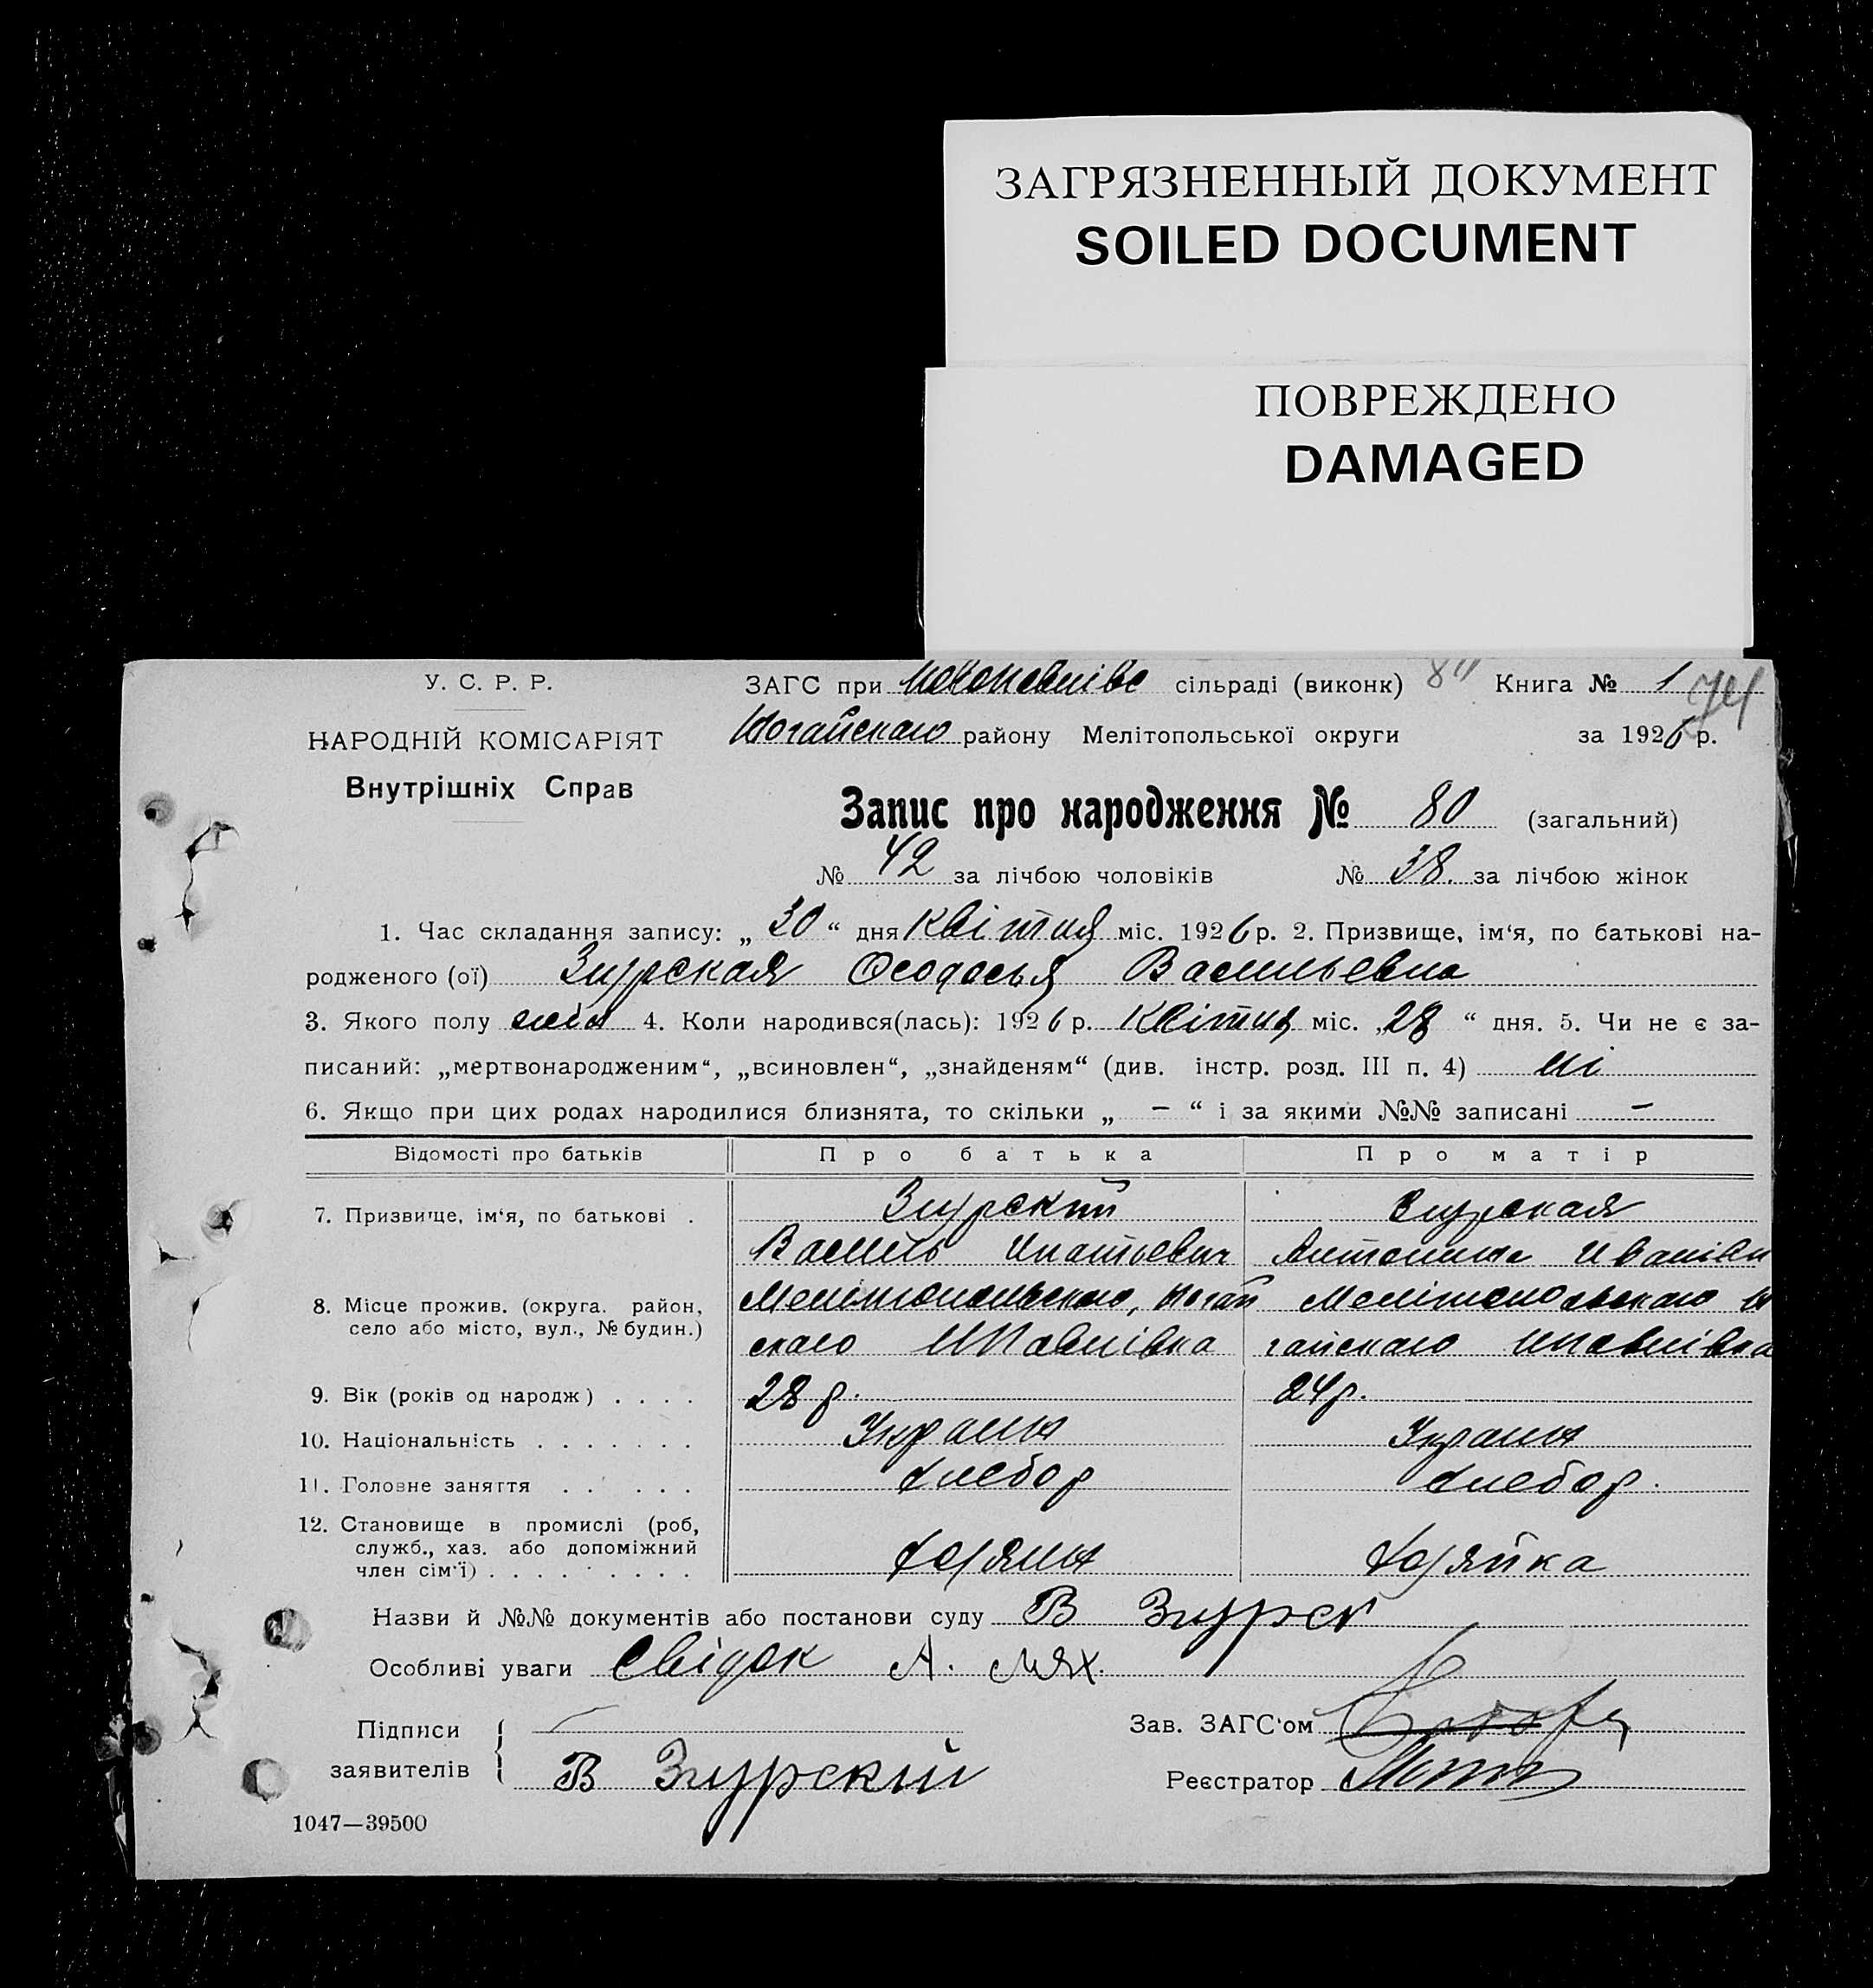 ЗАГРЯЗНЕННЫЙ ДОКУМЕНТ
SOILED DOCUMENT
ПОВРЕЖДЕНО
DAMAGED
У. С. Р. Р.
НАРОДНІЙ КОМІСАРІЯТ
Внутрішніх Справ
ЗАГС при сільраді (виконк) 80 Книга № 1
Ногайскаго району Мелітопольської округи за 1926 р.
Запис про народження № 80 (загальний)
№ 42 за лічбою чоловіків № 38. за лічбою жінок
1. Час складання запису: „ 30 “ дня квітня міс. 1926 р. 2. Призвище, ім‘я, по батькові на-
родженого (ої) Згурская Феодосья Васильевна
3. Якого полу 4. Коли народився(лась): 1926 р. Квітня міс. „28 “ дня. 5. Чи не є за-
писаний: „мертвонародженим“, „всиновлен“, „знайденям“ (див. інстр. розд. III п. 4) ні
6. Якщо при цих родах народилися близнята, то скільки „ — “ і за якими №№ записані —
Відомості про батьків Про батька Про матір
7. Призвище, ім‘я, по батькові . Згурский Згурская
Василь Игнатьевич Антонина Иванівн
8. Місце прожив. (округа. район, село або місто, вул., № будин.) Мелітопольскаго, Ногай Мелітопольскаго Но
скаго НПавлівка гайскаго НПавлівка
9. Вік (років од народж) . . . . 28 р. 24 р.
10. Національність . . . . . . . Украин Украин
11. Головне заняття . . . . . Хлебор Хлебор.
12. Становище в промислі (роб, служб., хаз. або допоміжний член сім‘ї) . . . . . . . . . Хозяин Хозяйка
Назви й №№ документів або постанови суду В Згурск
Особливі уваги Свідок А. Мях.
Підписи
заявителів В Згурский
Зав. ЗАГС‘ом
Реєстратор
1047—39500